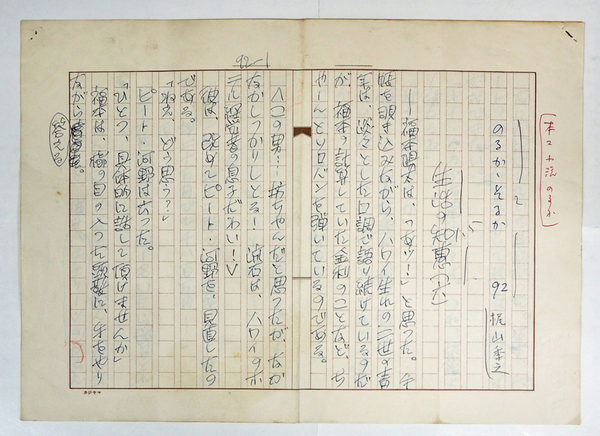 92
のるか・そるか 92 梶山季之
生活の知恵(六)
――福本寛太は、つおッ!」と思った。手
帖を覗き込みながら、ハワイ生れの二世の青
年は、淡々とした口調で語り続けているのだ
が、福本の計算していた金利のことなど、ち
ゃーんとソロバンを弾いているのである。
〈この男……坊ちゃんだと思ったが、なか
なかしっかりしとる! 流石は、ハワイのホ
テル経営者の息子だわい!〉
彼は、改めてピート・河野を、見直したの
である。
「ねえ、どう思う?」
ピート・河野は云った。
「ひとつ、具体的に話して頂けませんか」
福本は、橘の目の入った頭髪に、手をやり
ながら答える。